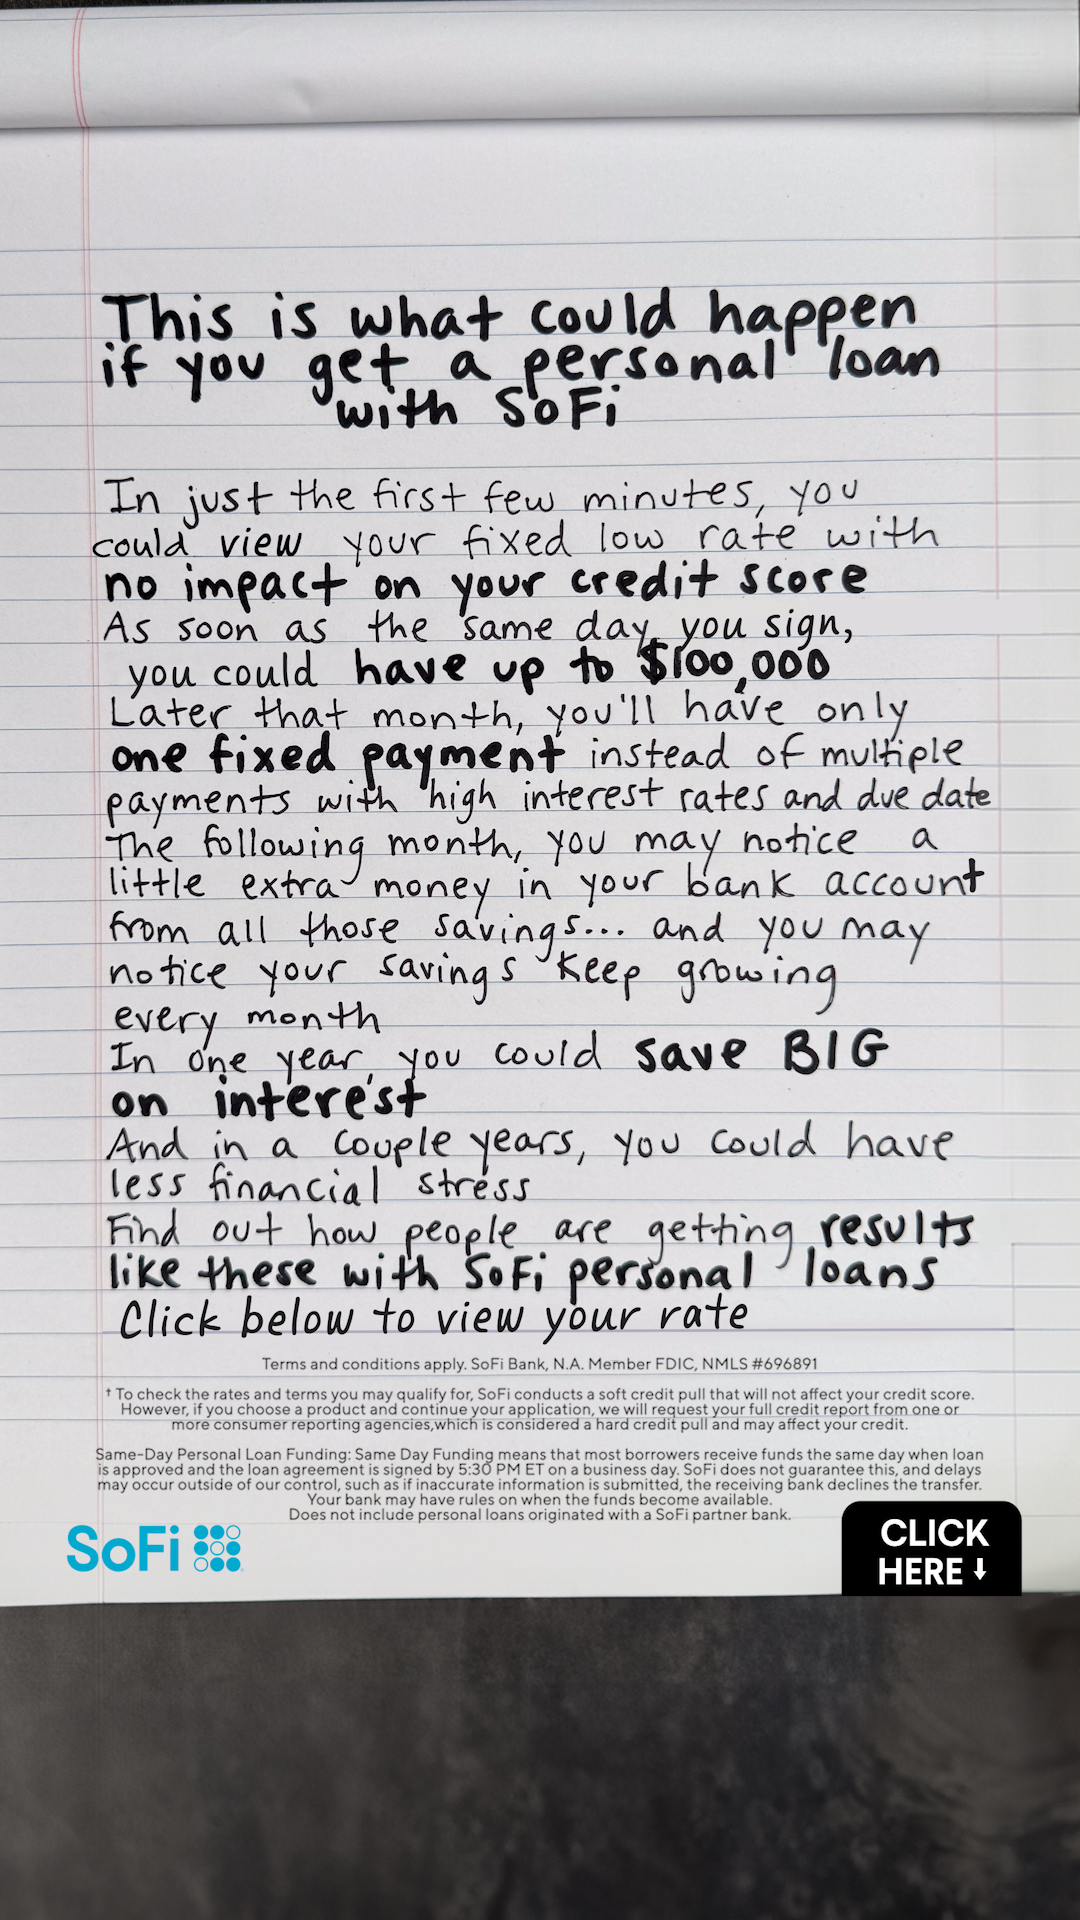 This is what could happen
if you get a personal loan
with SoFi
In just the first few minutes, you
could view your fixed low rate with
no impact on your credit score
As soon as the same day you sign,
you could have up to $100,000
Later that month, you'll have only
one fixed payment instead of multiple
payments with high interest rates and due date
The following month, you may notice a
little extra money in your bank account
from all those savings... and you may
notice your savings keep growing
every month
In one year, you could save BIG
on interest
And in a couple years, you could have
less financial stress
Find out how people are getting results
like these with SoFi personal loans
Click below to view your rate
Terms and conditions apply. SoFi Bank, N.A. Member FDIC, NMLS #696891
† To check the rates and terms you may qualify for, SoFi conducts a soft credit pull that will not affect your credit score.
However, if you choose a product and continue your application, we will request your full credit report from one or
more consumer reporting agencies,which is considered a hard credit pull and may affect your credit.
Same-Day Personal Loan Funding: Same Day Funding means that most borrowers receive funds the same day when loan
is approved and the loan agreement is signed by 5:30 PM ET on a business day. SoFi does not guarantee this, and delays
may occur outside of our control, such as if inaccurate information is submitted, the receiving bank declines the transfer.
Your bank may have rules on when the funds become available.
Does not include personal loans originated with a SoFi partner bank.
SoFi
CLICK
HERE ↓